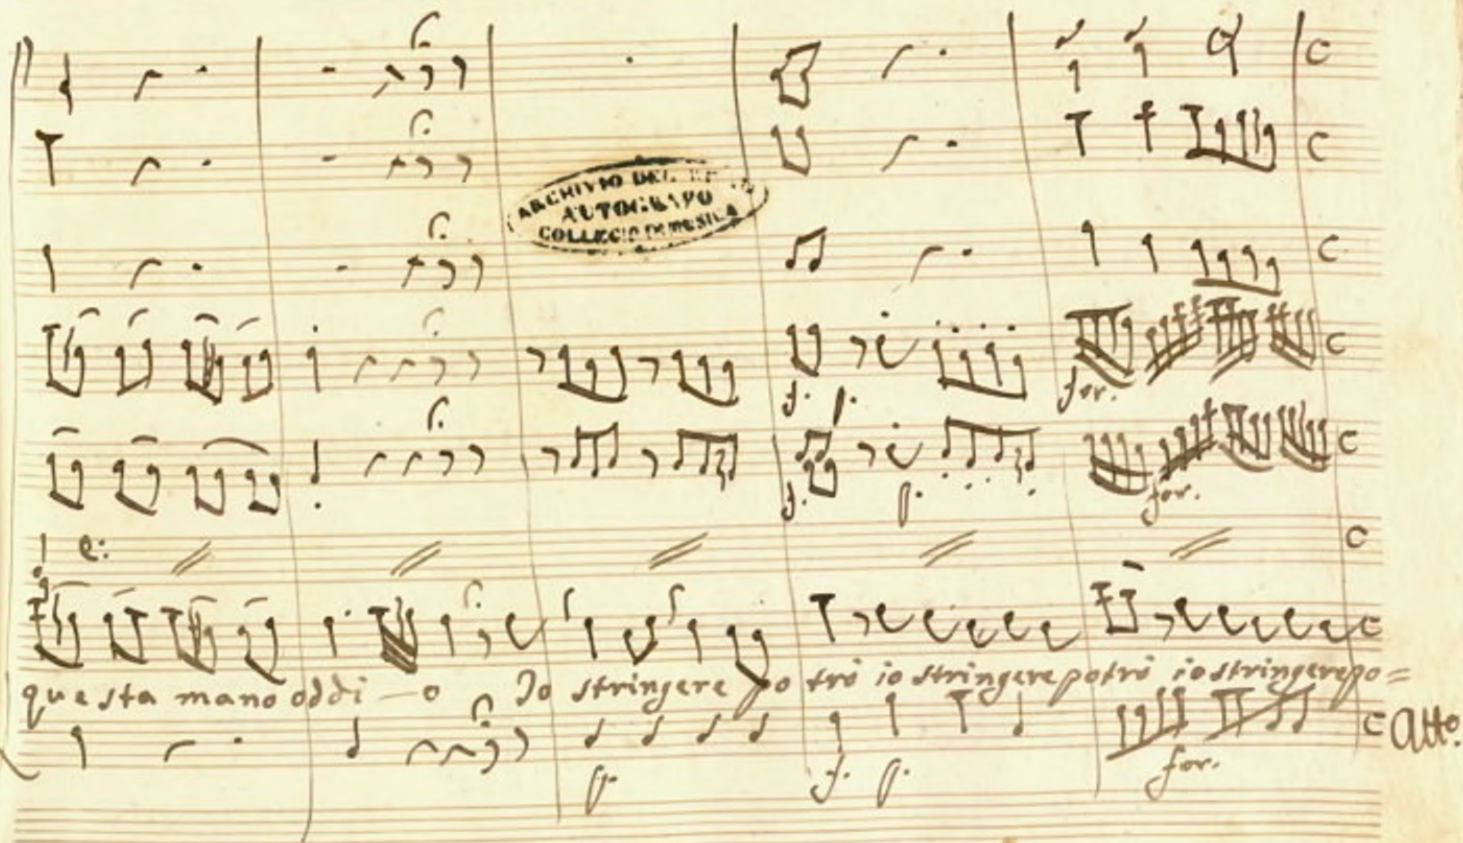 ARCHIVIO DEL
AUTOGRAFO
COLLEGIO DI MUSICA
f. p.
for.
f. p. for.
questa mano oddi - o Io stringere potrò io stringere potrò io stringere po=
Allo.
p. f. p. for.